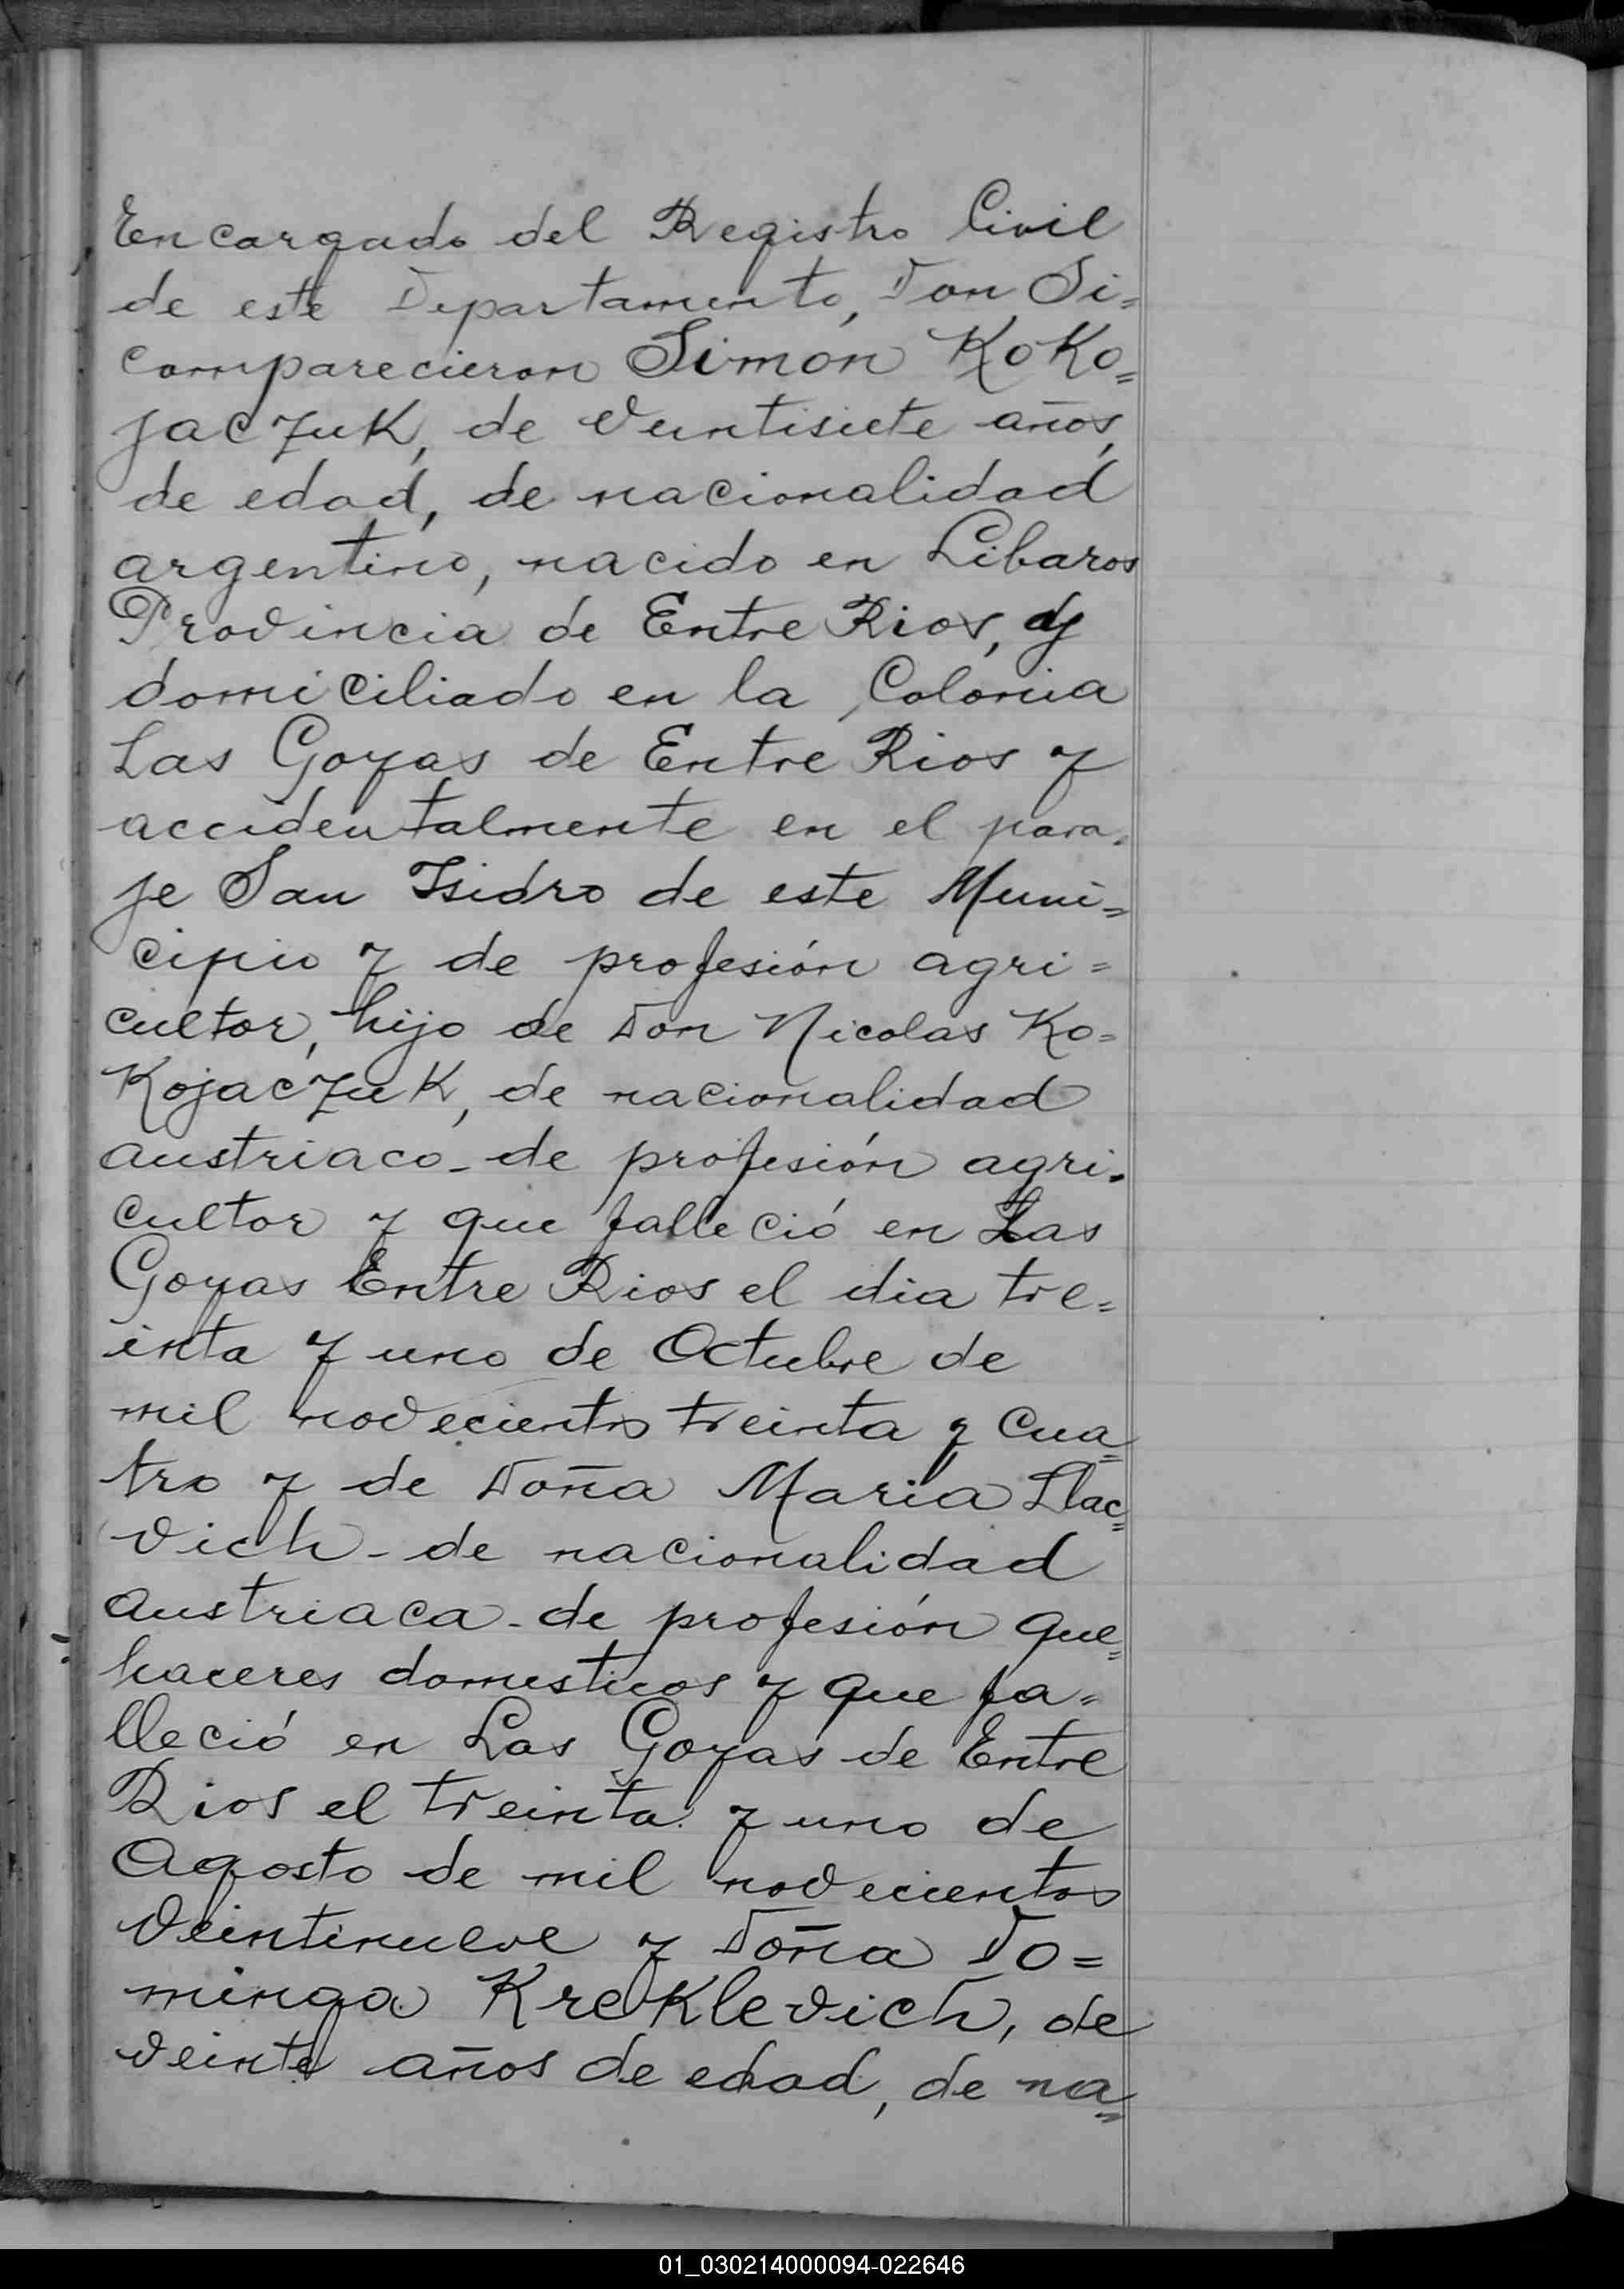 Encargado del Registro Civil
de este Departamento, Don Si=
comparecieron Simón KoKo=
jaczuK, de veintisiete años,
de edad, de nacionalidad
argentino, nacido en Libaros
Provincia de Entre Rios,
domiciliado en la Colonia
Las Goyas de Entre Rios y
accidentalmente en el para=
je San Isidro de este Muni=
cipio y de profesión agri=
cultor, hijo de Don Nicolas Ko=
KojaczuK, de nacionalidad
austriaco - de profesión agri=
cultor y que falleció en Las
Goyas Entre Rios el dia tre=
inta y uno de Octubre de
mil novecientos treinta y cua=
tro y de Doña Maria Llac=
vich - de nacionalidad
austriaca - de profesión que=
haceres domesticos y que fa=
lleció en Las Goyas de Entre
Rios el treinta y uno de
Agosto de mil novecientos
veintinueve y Doña Do=
minga KreKlevich, de
veinte años de edad, de na=
01_030214000094-022646